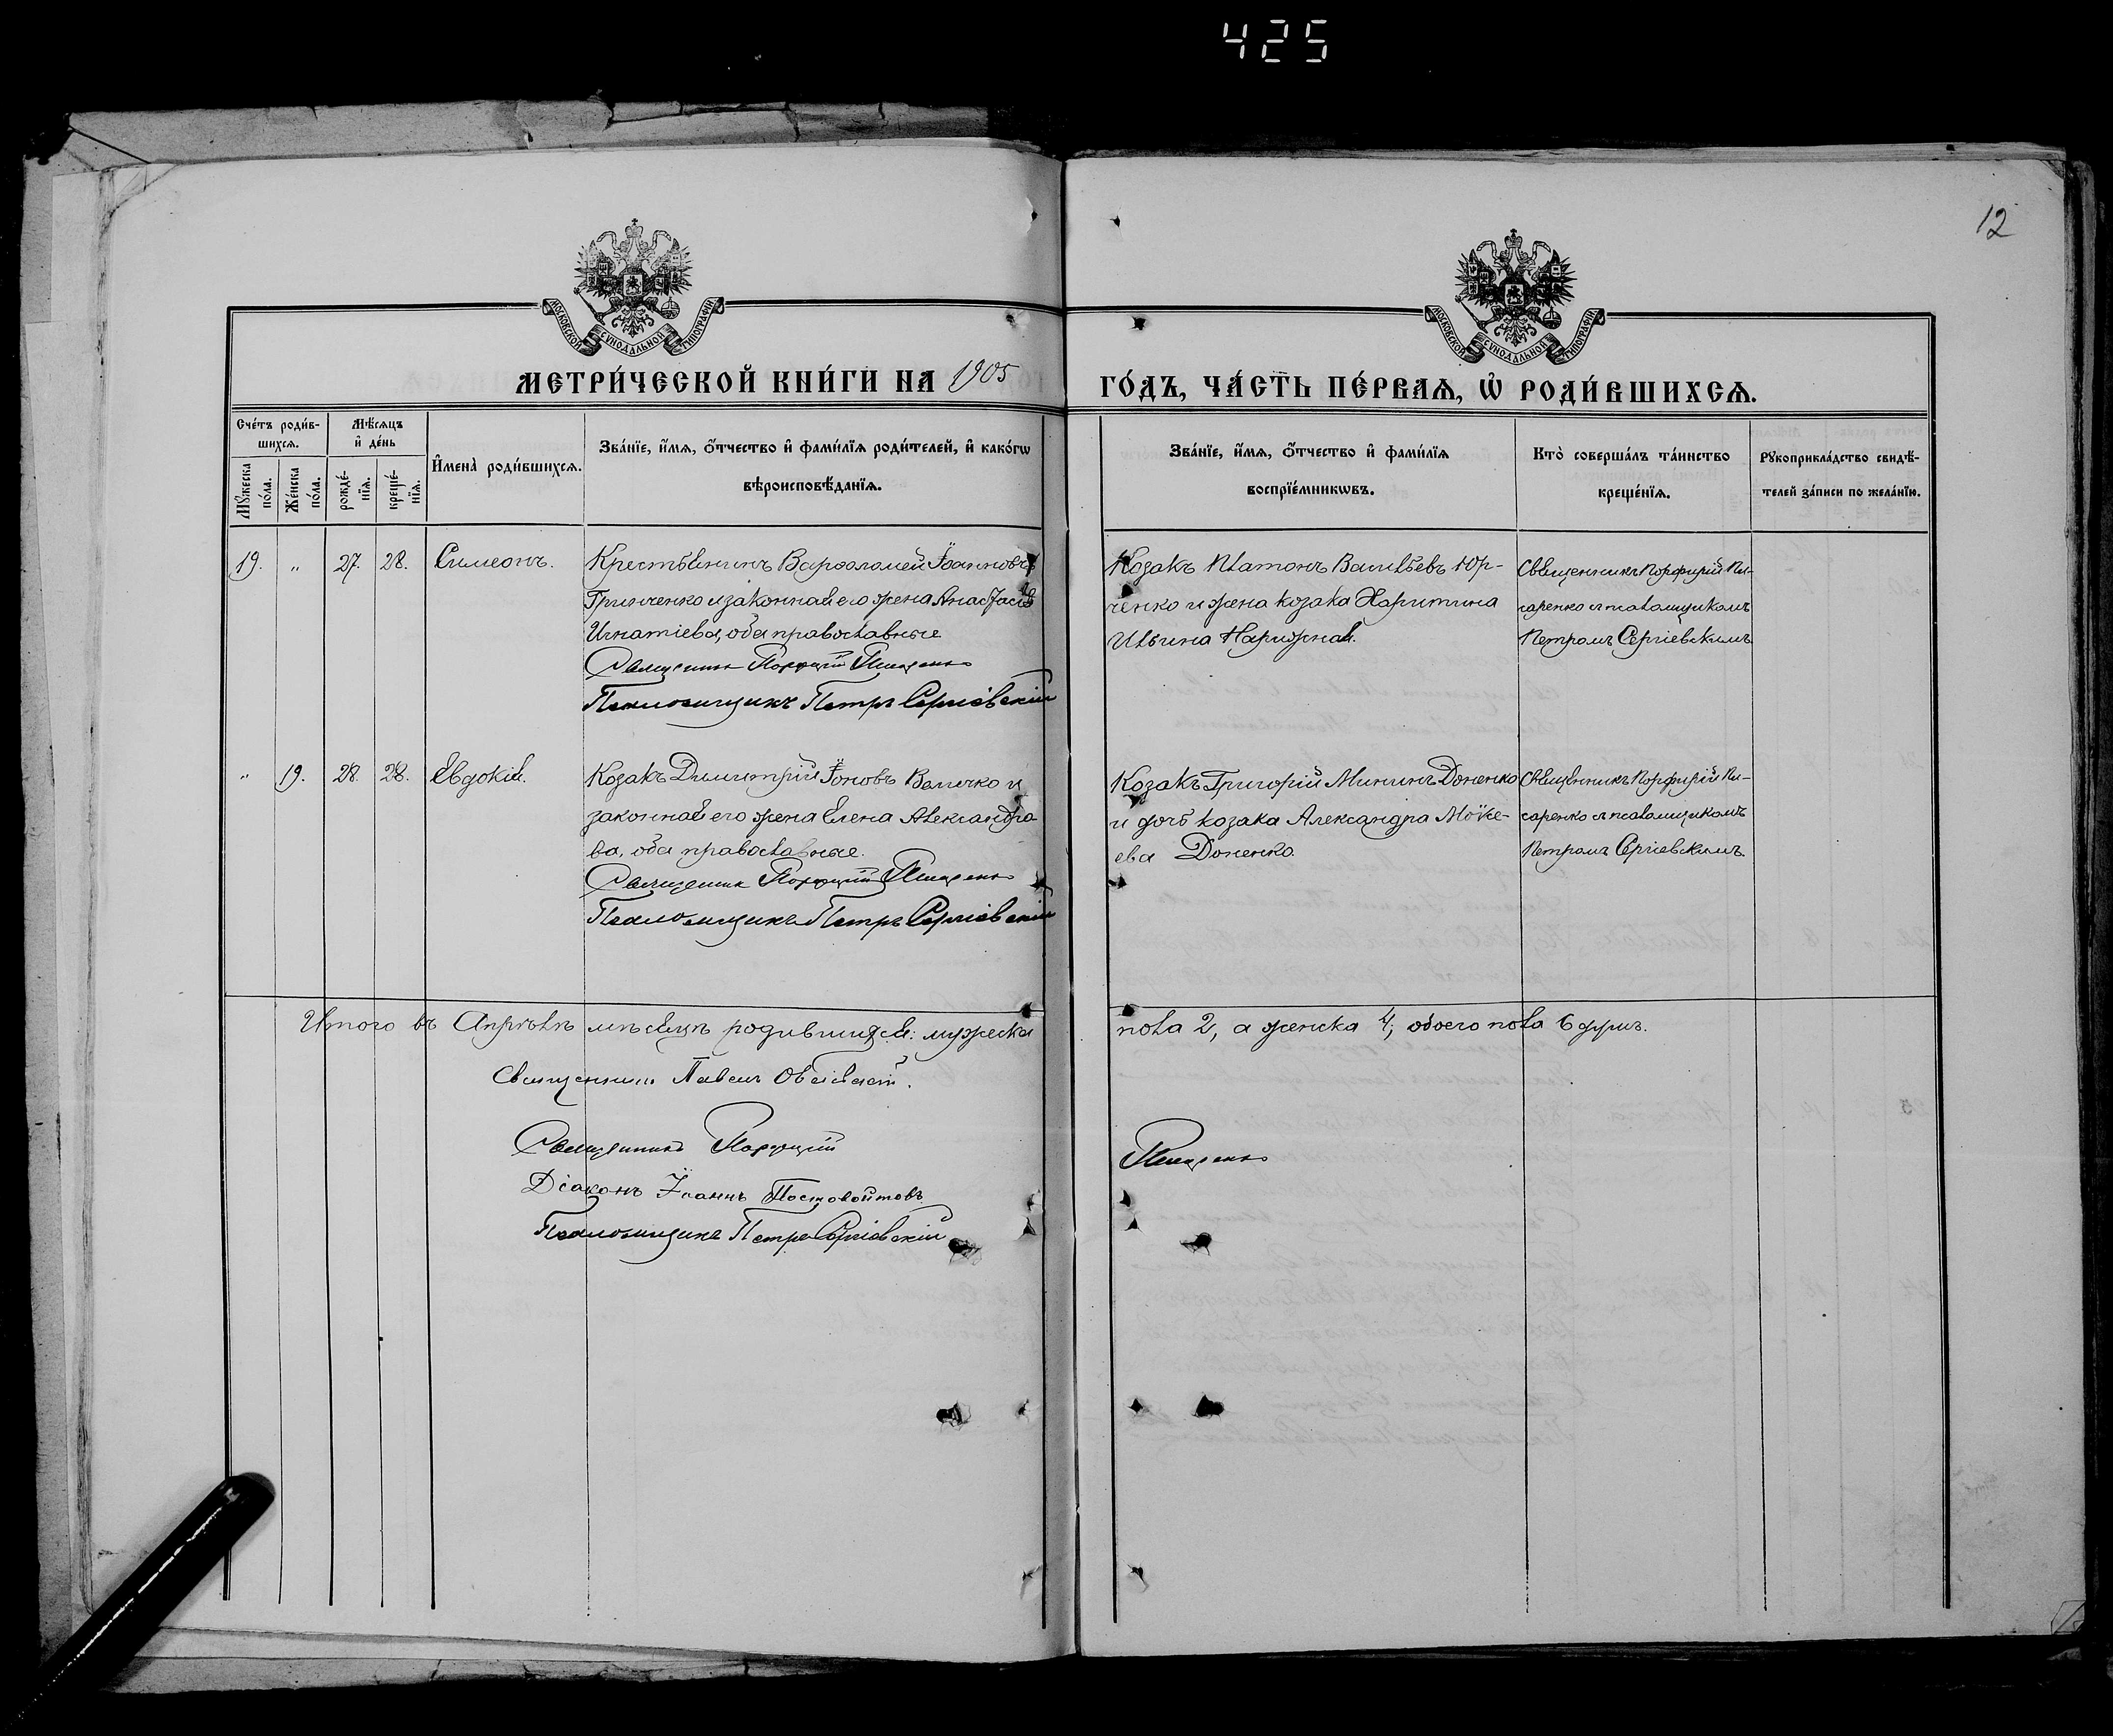 425
12
МОСКОВСКОЙ СѴНОДАЛЬНОЙ ТИПОГРАФІИ
МОСКОВСКОЙ СѴНОДАЛЬНОЙ ТИПОГРАФІИ
МЕТРИ́ЧЕСКОЙ КНИ́ГИ НА 1905
ГО́ДЪ, ЧА́СТЬ ПЕ́РВАѦ, Ѡ҆ РОДИ́ВШИХСѦ.
Сче́тъ роди́в-
шихсѧ.
Мꙋ́жеска
по́ла.
Же́нска
по́ла.
Мѣ́сѧцъ
и҆ де́нь
рожде́-
нїѧ.
креще́-
нїѧ.
И҆мена̀ роди́вшихсѧ.
Зва́нїе, и҆́мѧ, ѻ҆́тчество и҆ фами́лїѧ роди́телей, и҆ како́гѡ
вѣроисповѣ́данїѧ.
Зва́нїе, и҆́мѧ, ѻ҆́тчество и҆ фами́лїѧ
воспрїе́мникѡвъ.
Кто̀ соверша́лъ та́инство
креще́нїѧ.
Рꙋкоприкла́дство свидѣ́-
телей за́писи по жела́нїю.
19. „ 27. 28. Симеонъ.
Крестьянинъ Варѳоломей Іоанновъ
Гринченко и законная его жена Анастасія
Игнатіева, оба православные
Священникъ Порфирій Писаренко
Псаломщикъ Петръ Сергіевскій
Козакъ Платонъ Васильевъ Юр-
ченко и жена козака Харитина
Ильина Нарижная.
Священникъ Порфирій Пи-
саренко съ псаломщикомъ
Петромъ Сергіевскимъ
„ 19. 28. 28. Евдокія.
Козакъ Димитрій Іоновъ Величко и
законная его жена Елена Александро-
ва, оба православные.
Священникъ Порфирій Писаренко
Псаломщикъ Петръ Сергіевскій
Козакъ Григорій Мининъ Доненко
и дочь козака Александра Мокіе-
ева Доненко.
Священникъ Порфирій Пи-
саренко съ псаломщикомъ
Петромъ Сергіевскимъ.
Итого въ Апрѣлѣ мѣсяцѣ родившихся: мужеска
пола 2, а женска 4; обоего пола 6 душъ.
Священникъ Павелъ
Священникъ Порфирій
Писаренко
Діаконъ Іоаннъ Постовойтовъ
Псаломщикъ Петръ Сергіевскій